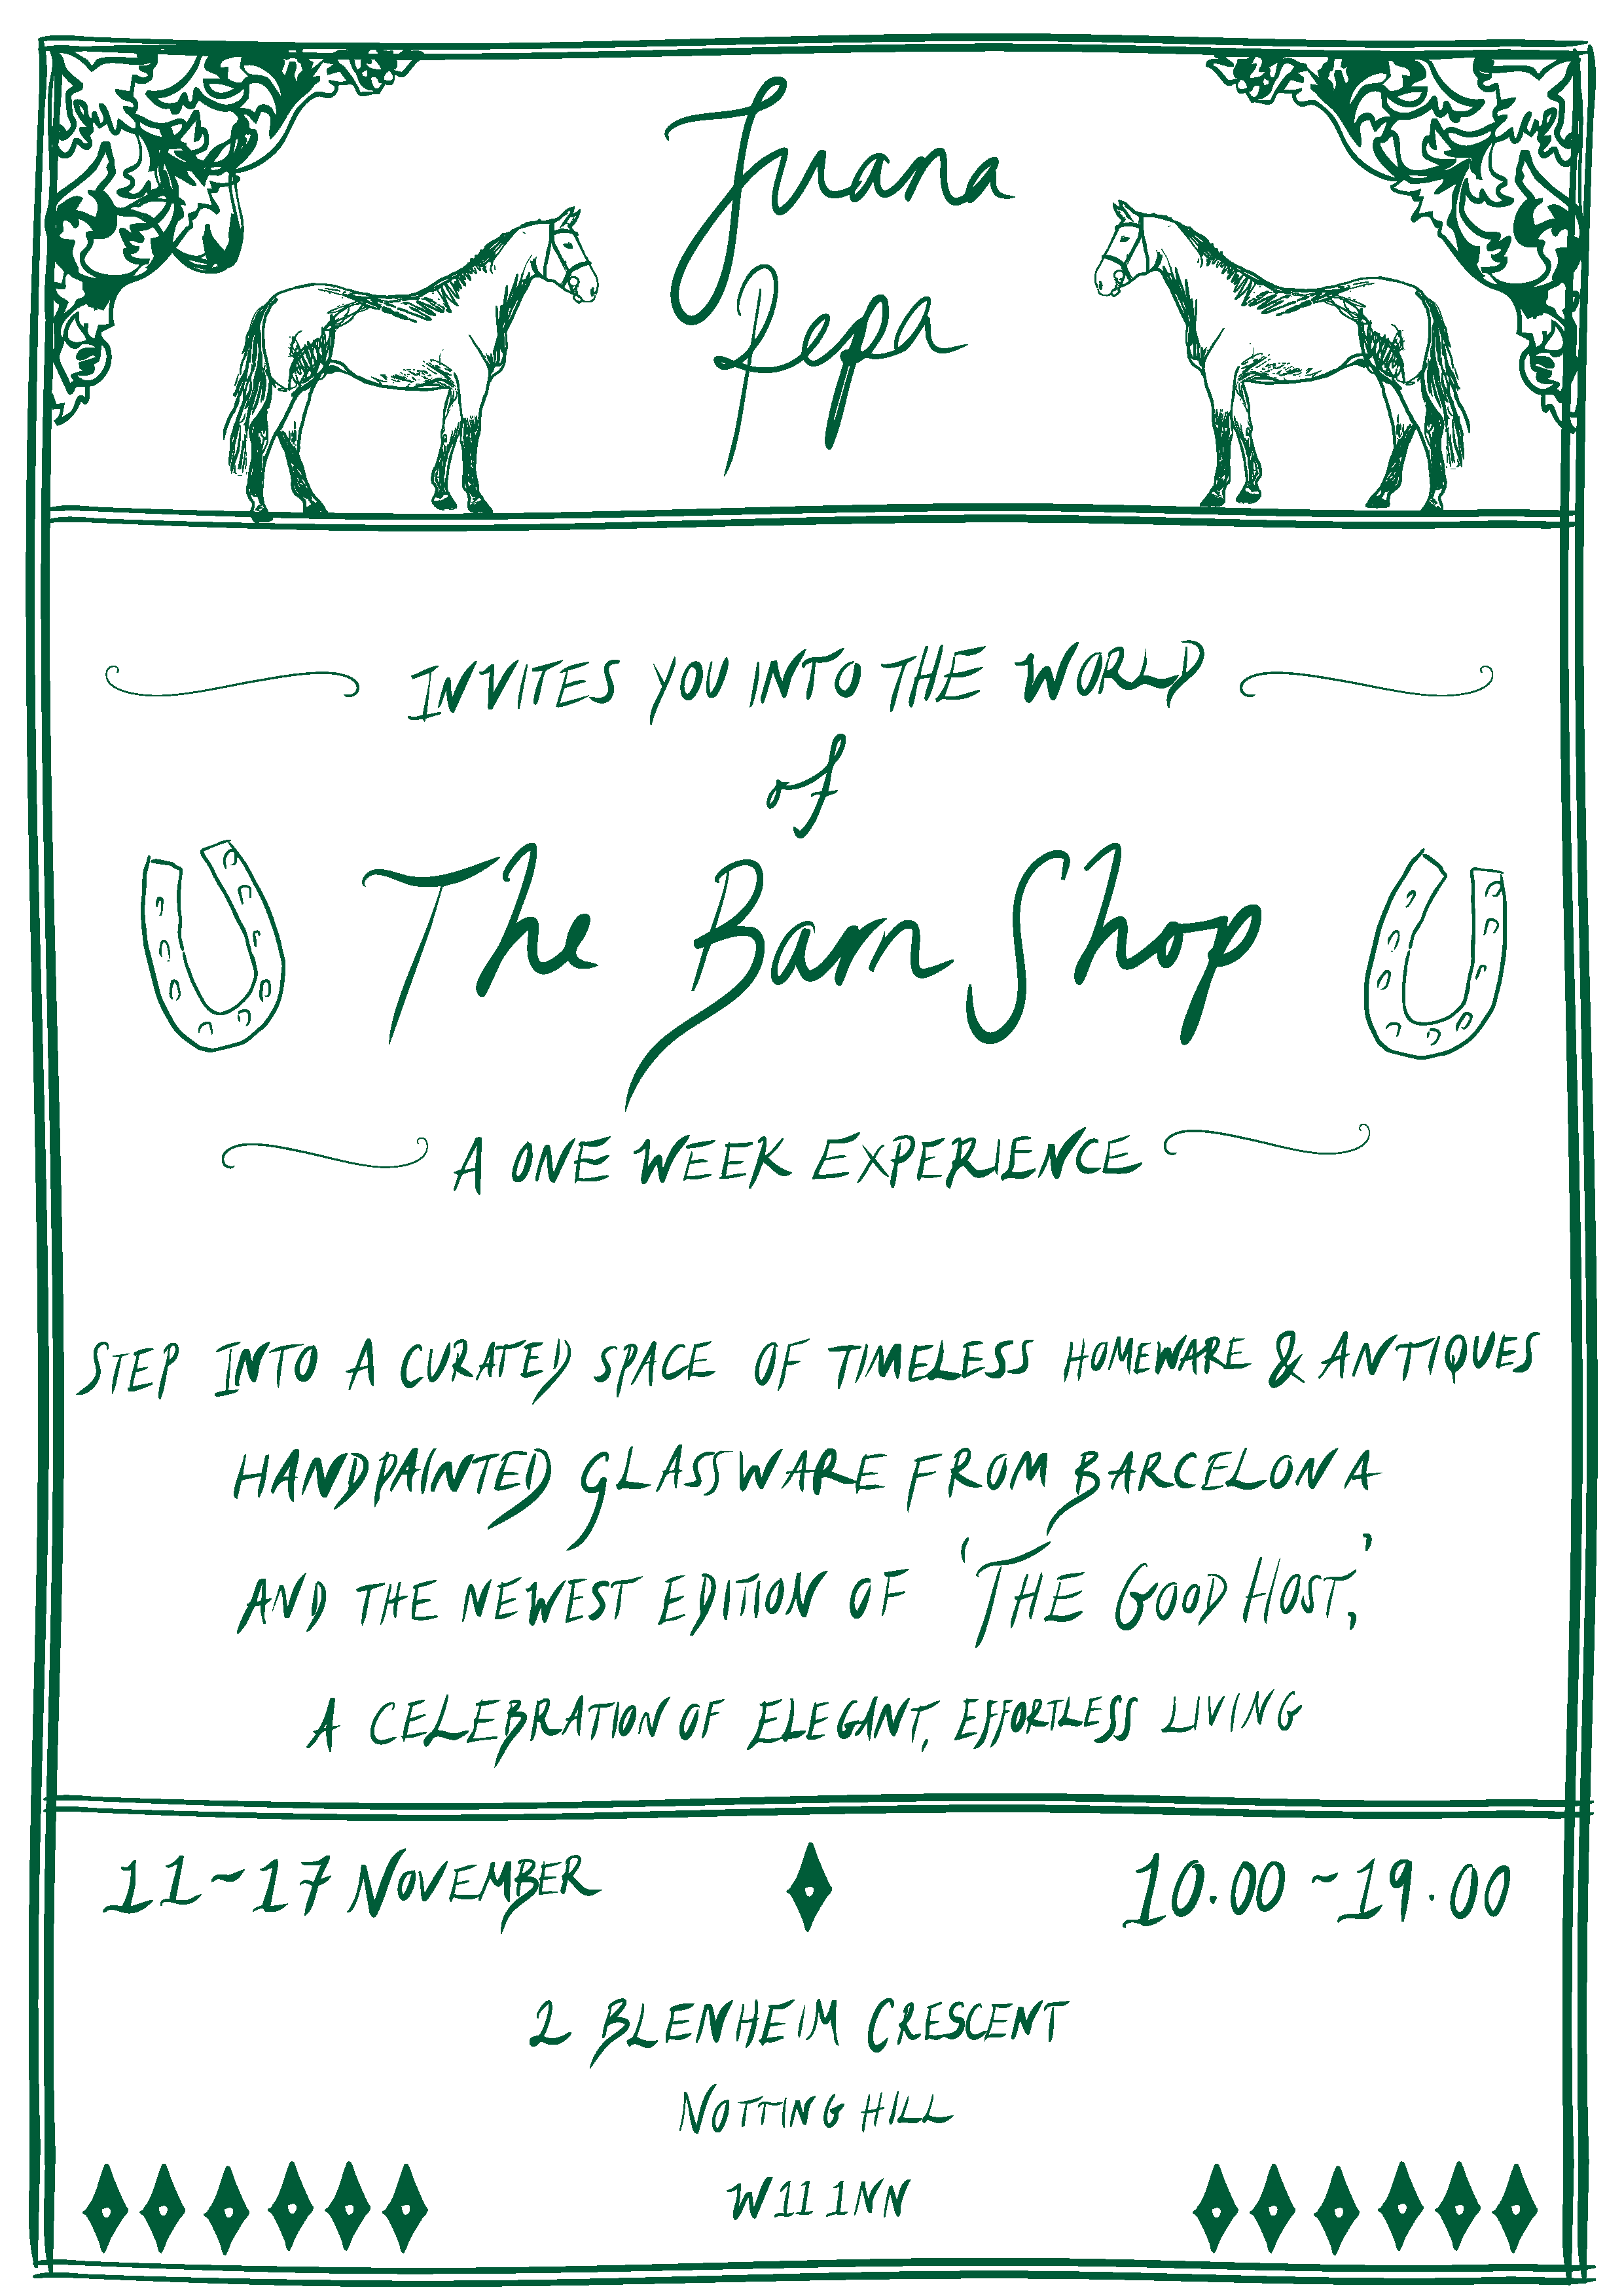 Juana
Pepa
INVITES YOU INTO THE WORLD
of
The Barn Shop
A ONE WEEK EXPERIENCE
STEP INTO A CURATED SPACE OF TIMELESS HOMEWARE & ANTIQUES
HANDPAINTED GLASSWARE FROM BARCELONA
AND THE NEWEST EDITION OF 'THE GOOD HOST,'
A CELEBRATION OF ELEGANT, EFFORTLESS LIVING
11~17 NOVEMBER
10.00 ~19.00
2 BLENHEIM CRESCENT
NOTTING HILL
W11 1NN